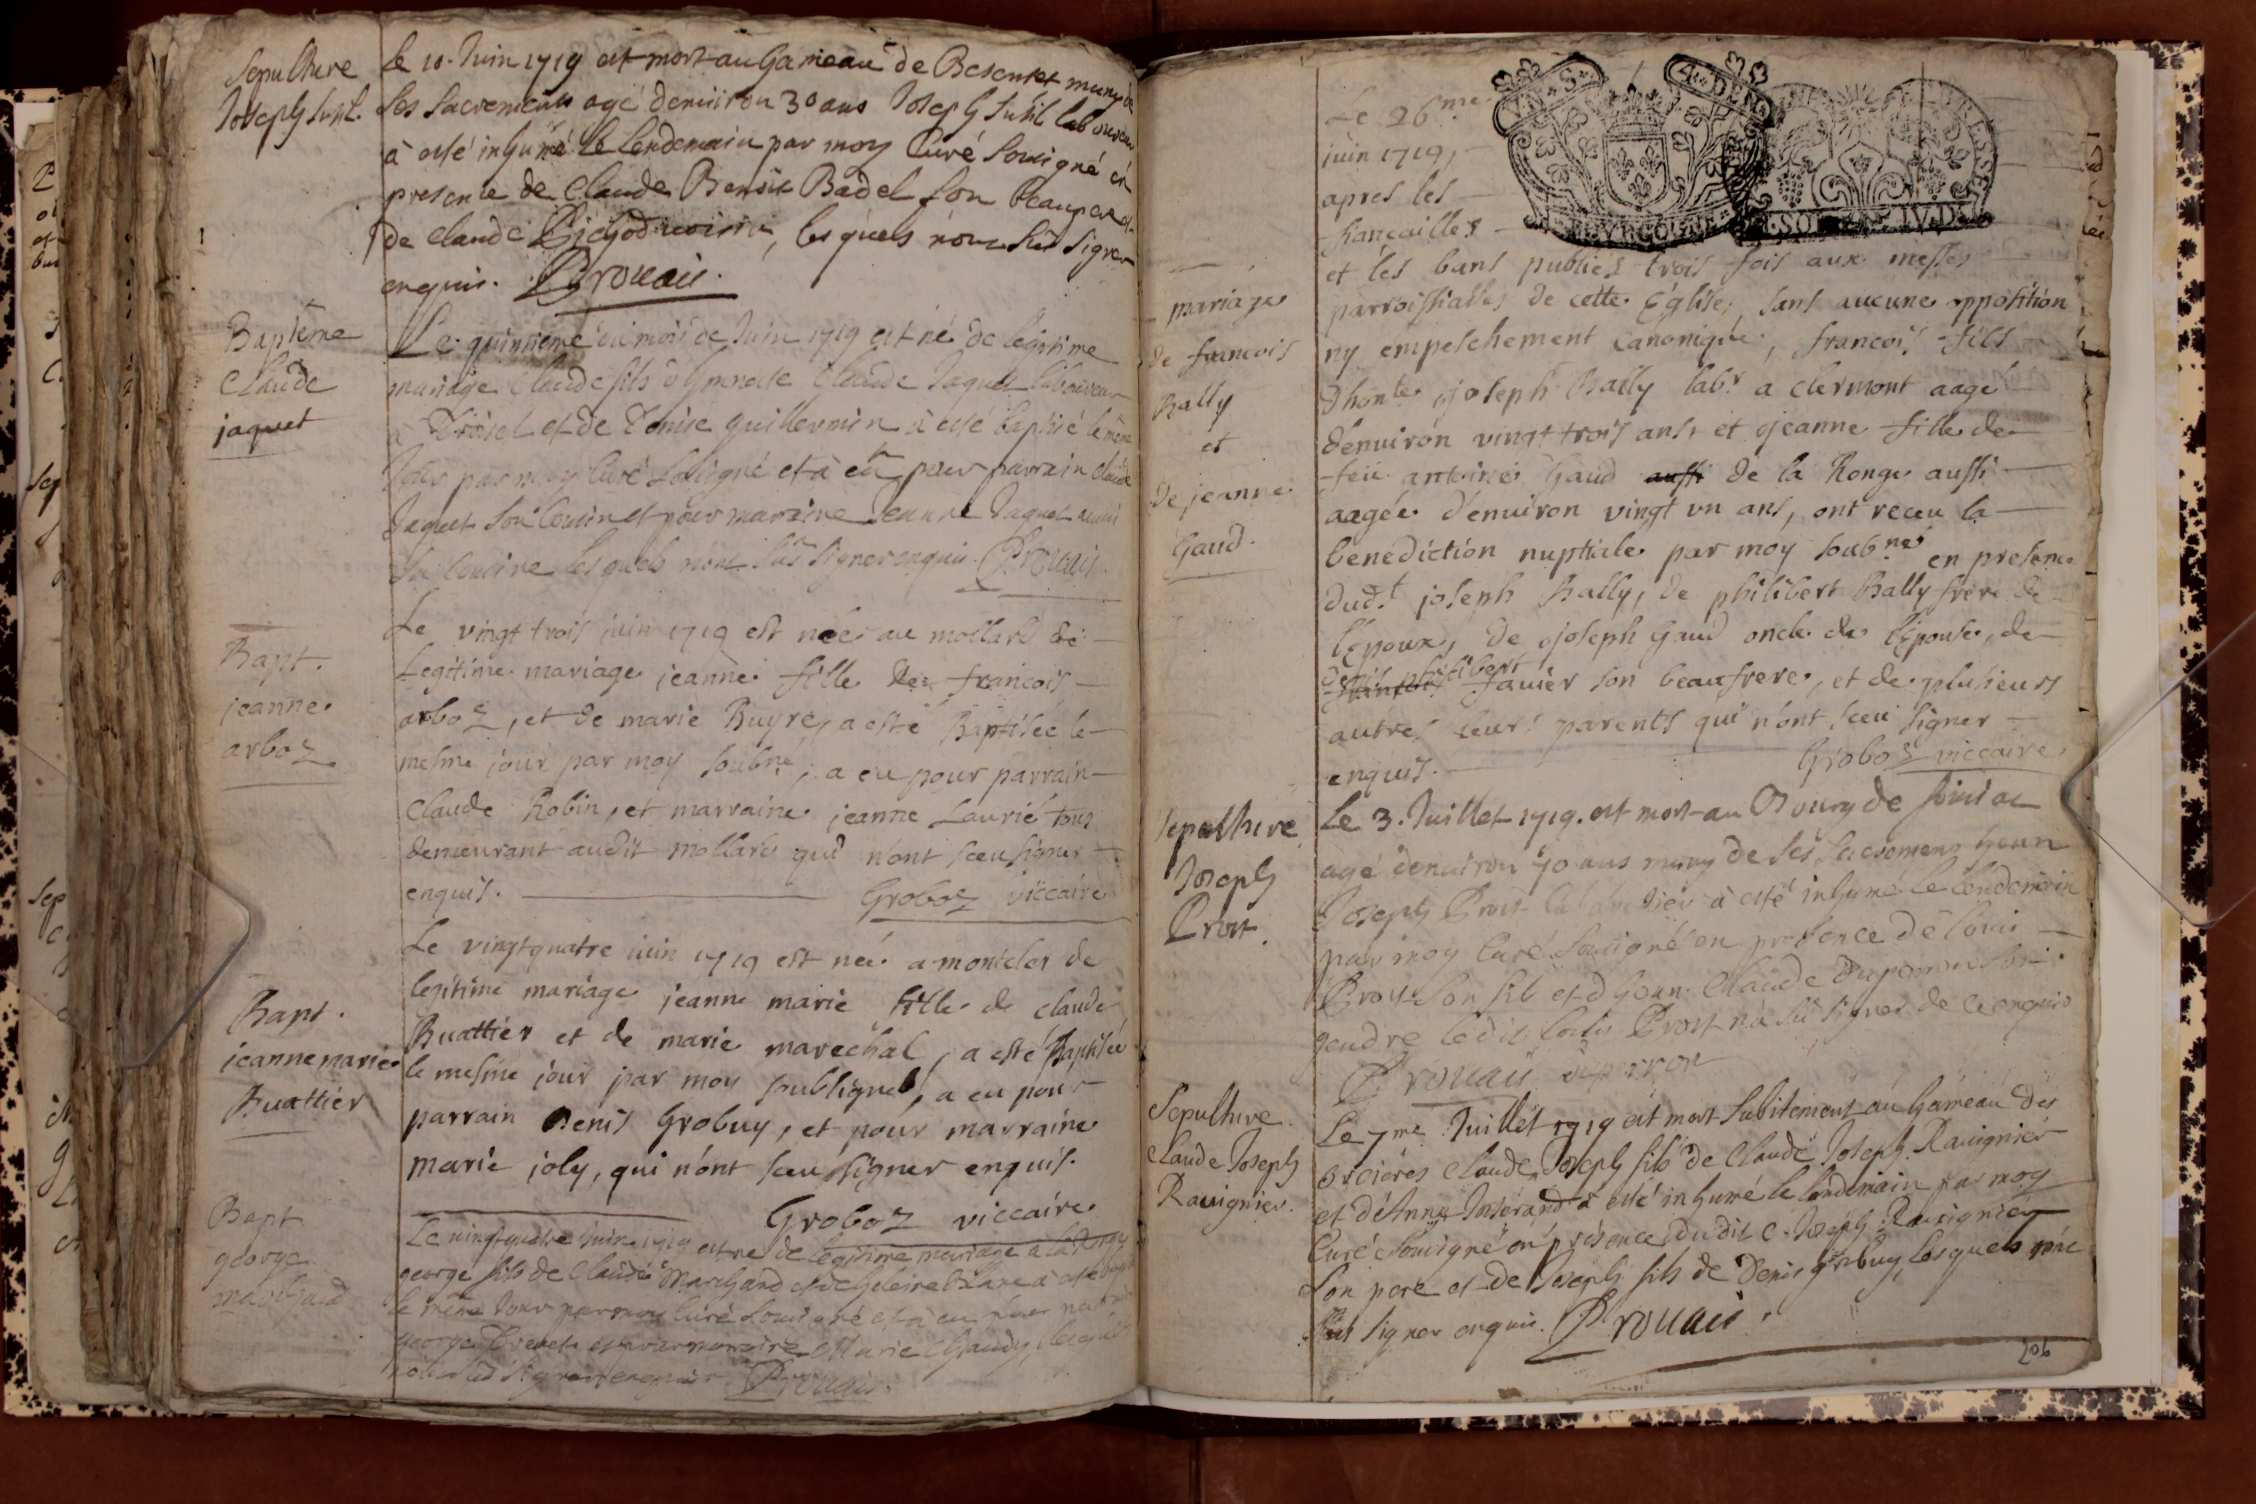 Sepulture
Joseph Subl.
Le 10. Juin 1719 est mort au hameau de Besentet muny de
ses sacremens agé denuiron 30 ans Joseph Subil laboureur
à esté inhumé le lendemain par moy Curé Sousigné en
presence de Claude Benoit Badel son beaupere et
de claude Bichod voisin, les quels n'ont sceu signer
enquis. Prouais.
Baptême
Claude
jaquet
Le quinzieme du mois de Juin 1719 est né de legitime
mariage Claude fils d'honneste Claude Jaquet laboureur
à et de Denise guillermin à esté baptisé le même
Jour par moy Curé sousigné et à eu pour parrain Claude
Jaquet son Cousin et pour maraine Jeanne Jaquet aussi
sa Cousine les quels n'ont sceu signer enquis. Prouais.
Bapt.
jeanne
arboz
Le vingt trois juin 1719 est née au mollard de
Legitime mariage jeanne fille de francois
arboz, et de marie Buyre, a esté Baptisée le
mesme jour par moy soubné, a eu pour parrain
Claude Robin, et marraine jeanne Laurié tous
demeurant audit mollard qui n'ont sceu signer
enquis. Groboz viccaire
Bapt.
jeanne marie
Buattier
Le vingtquatre iuin 1719 est née a montcler de
legitime mariage jeanne marie fille de claude
Buattier et de marie marechal, a esté Baptisée
le mesme jour par moy soubsigné, a eu pour
parrain Denis Grobuy, et pour marraine
marie joly, qui n'ont sceu signer enquis.
Groboz viccaire
Bapt
george
marchand
Le vingtquatre Juin 1719 est né de legitime mariage à la Ronge
george fils de Claude Marchand et de a esté
le même Jour par moy Curé sousigné et à eu pour
george et pour maraine Marie Chaudy, lesquels
n'ont sceu signer enquis Prouais.
Le 26me
juin 1719,
apres les
fiancailles
et les bans publiés trois fois aux messes
parroissialles de cette Eglise, sans aucune opposition
ny empeschement canonique, francois fils
d'honte joseph Bally labr a clermont aagé
denuiron vingt trois ans, et jeanne fille de
feü antoine Gaud aussi de la Ronge aussi
aagée d'enuiron vingt un ans, ont receu la
benediction nuptiale par moy soubné en presence
dudt joseph Bally, de philibert Bally frere de
l'Epoux, de joseph Gaud oncle de l'Epouse, de
denis philibert
fauier son beaufrere, et de plusieurs
autres leurs parents qui n'ont sceu signer
enquis. Groboz viccaire
mariage
de francois
Bally
et
de jeanne
Gaud.
Sepulture
Joseph
Prost.
Le 3. Juillet 1719. est mort au Bourg de
agé denuiron 70 ans muny de ses sacremens honn
Joseph Prost à esté inhumé le lendemain
par moy Curé Sousigné en presence de Louis
Prost son fils et d'honn. Claude Duperron son
gendre ledit Louis Prost n'a sceu signer de ce enquis
Prouais duperron
Sepulture
Claude Joseph
Rauignier.
Le 7me Juillet 1719 est mort subitement au hameau des
orcieres Claude Joseph fils de Claude Joseph Rauignier
et d'Anne à esté inhumé le lendemain par moy
Curé Sousigné en presence dudit C. Joseph Rauignier
son pere et de Joseph fils de Denis grobuy, lesquels n'ont
sceu signer enquis. Prouais.
206